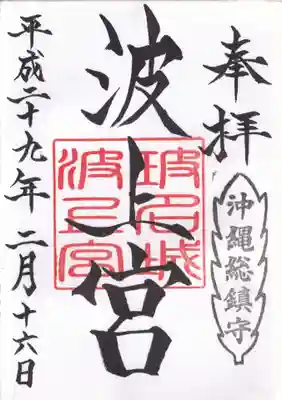 奉拝
沖縄総鎮守
波上宮
波上宮
平成二十九年二月十六日